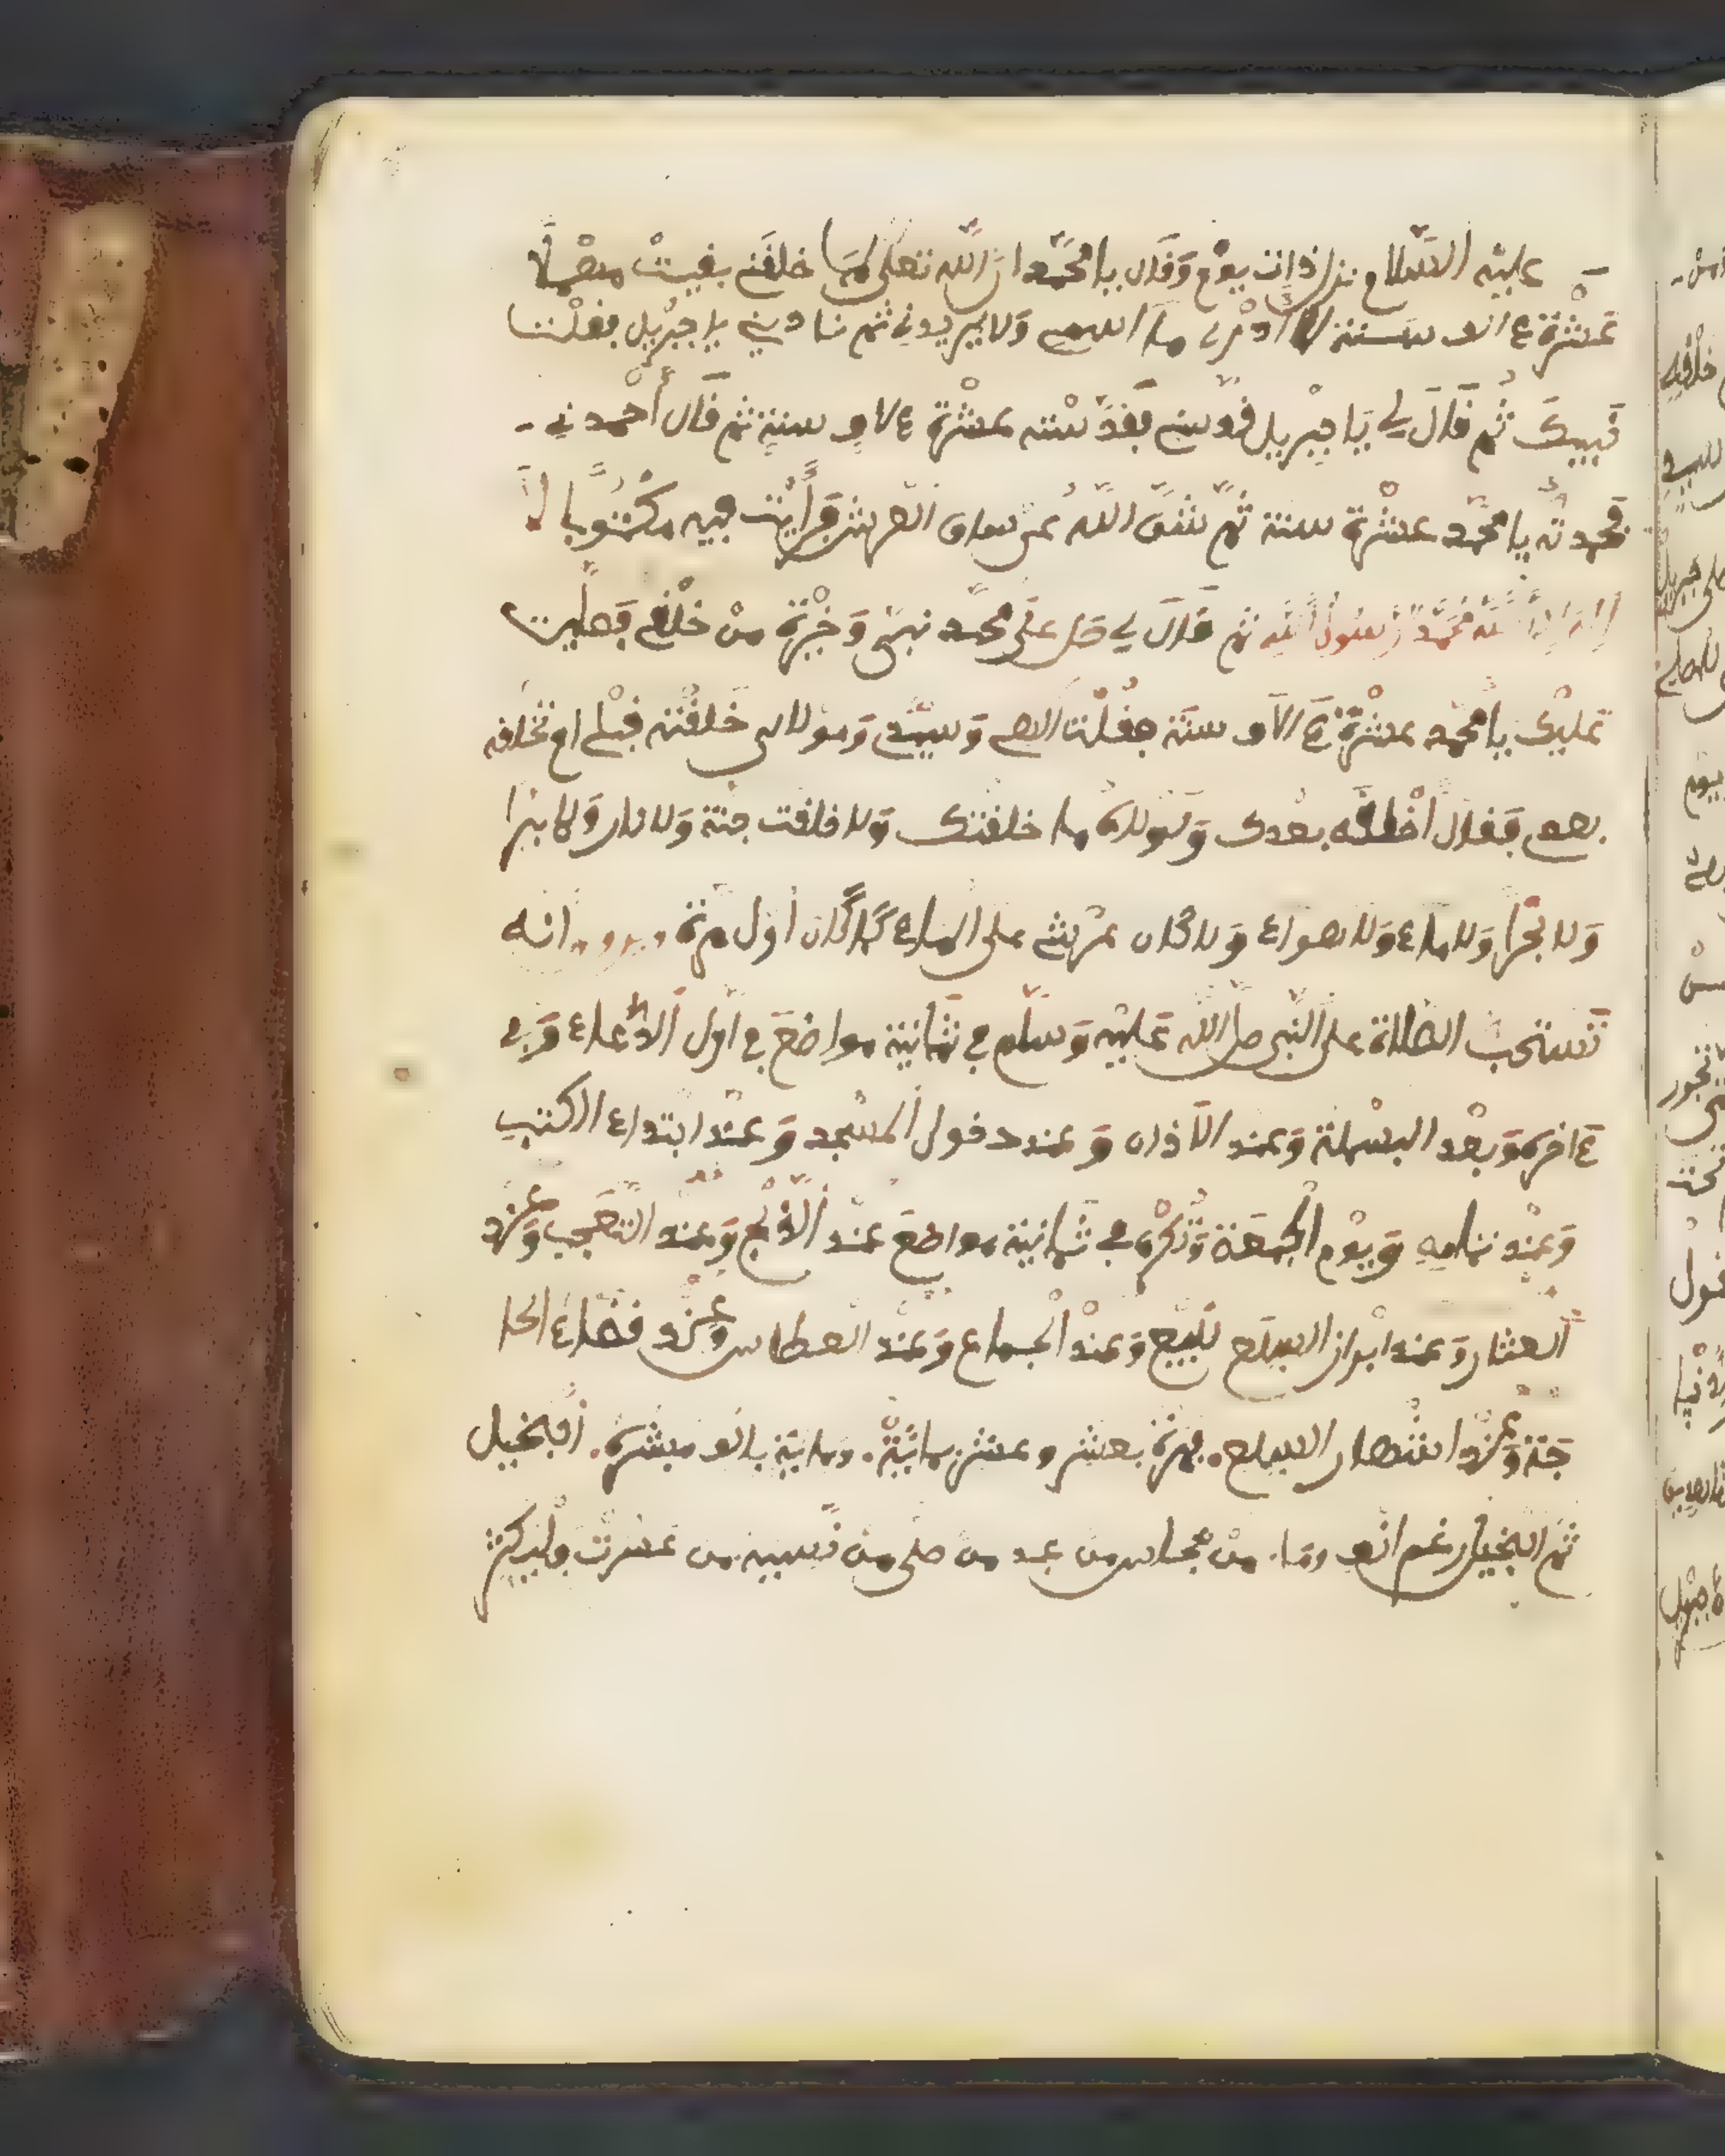 عليه السلام نزل ذات يوم وقال يا محمد ان الله تعلى لما خلقني بقيت مهملا
عشرة ءالف سنة لا أدري ما اسمي ولا يريدوني ثم ناديني يا جبريل فقلت
لبيك ثم قال لي يا جبريل قدسني فقدسته عشرة ءالاف سنة ثم قال أحمدني
فحمدته يا محمد عشرة سنة ثم شق الله عن ساق العرش فرأيت فيه مكتوبا لا
إله إلا الله محمد رسول الله ثم قال لي صل على محمد نبيي وخيرة من خلقي فصليت
عليك يا محمد عشرة ءالاف سنة فقلت الهي وسيدي ومولاي خلقته قبلي او تخلقه
بعدي فقال أخلقه بعدك ولولاه ما خلقتك ولا خلقت جنة ولا نار ولا برا
ولا بحرا ولا ماء ولا هواء ولا كان عرشي على الماء كما كان أول مرة انه
تستحب الصلاة على النبي صل الله عليه وسلم في ثمانية مواضع في أول الدعاء وفي
ءاخره وبعد البسملة وعند الآذان وعند دخول المسجد وعند ابتداء الكتب
وعند تمامه ويوم الجمعة وتكره في ثمانية مواضع عند الذبح وعند التعجب وعند
العثار وعند ابراز السلع للبيع وعند الجماع وعند العطاس وعند قضاء الحا
جة وعند اشتهار السلع. مرة بعشر وعشر بمائة. ومائة بالف مبشرة. البخيل
ثم البخيل رغم انف وما. من من عبد من صلى من نسيه من عسرت فليكثر